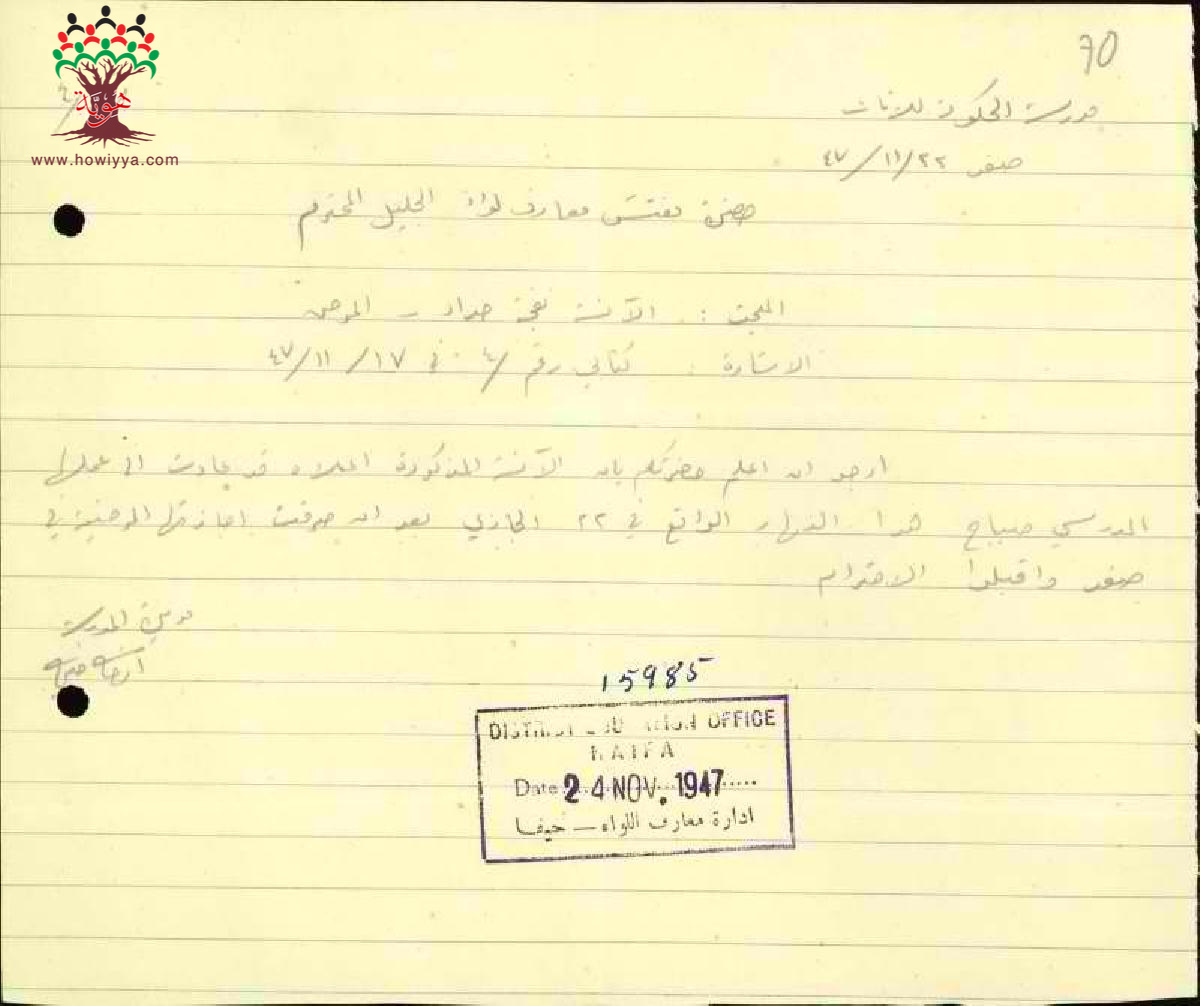 70
هَوِيَّة
www.howiyya.com
مدرسة الحكومة للاناث
صفد ٢٢/١١/٤٧
حضرة مفتش معارف لواء الجليل المحترم
المبحث : الآنسة حداد - المرض
الاشارة : كتابي رقم ٤/ في ١٧/١١/٤٧
ارجو ان اعلم حضرتكم بان الآنسة المذكورة اعلاه قد عادت الى عملها
المدرسي صباح هذا النهار الواقع في ٢٢ الجاري بعد ان صرفت اجازتها المرضية في
صفد واقبلوا الاحترام
مديرة المدرسة
15985
DISTRICT EDUCATION OFFICE
HAIFA
Date 24 NOV. 1947
ادارة معارف اللواء — حيفا